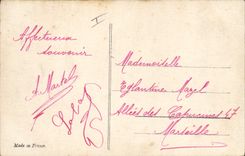 Affectueux
souvenir
A. Martel
Mademoiselle
Eglantine Mazel
Allées des Capucines 47
Marseille
Made in France